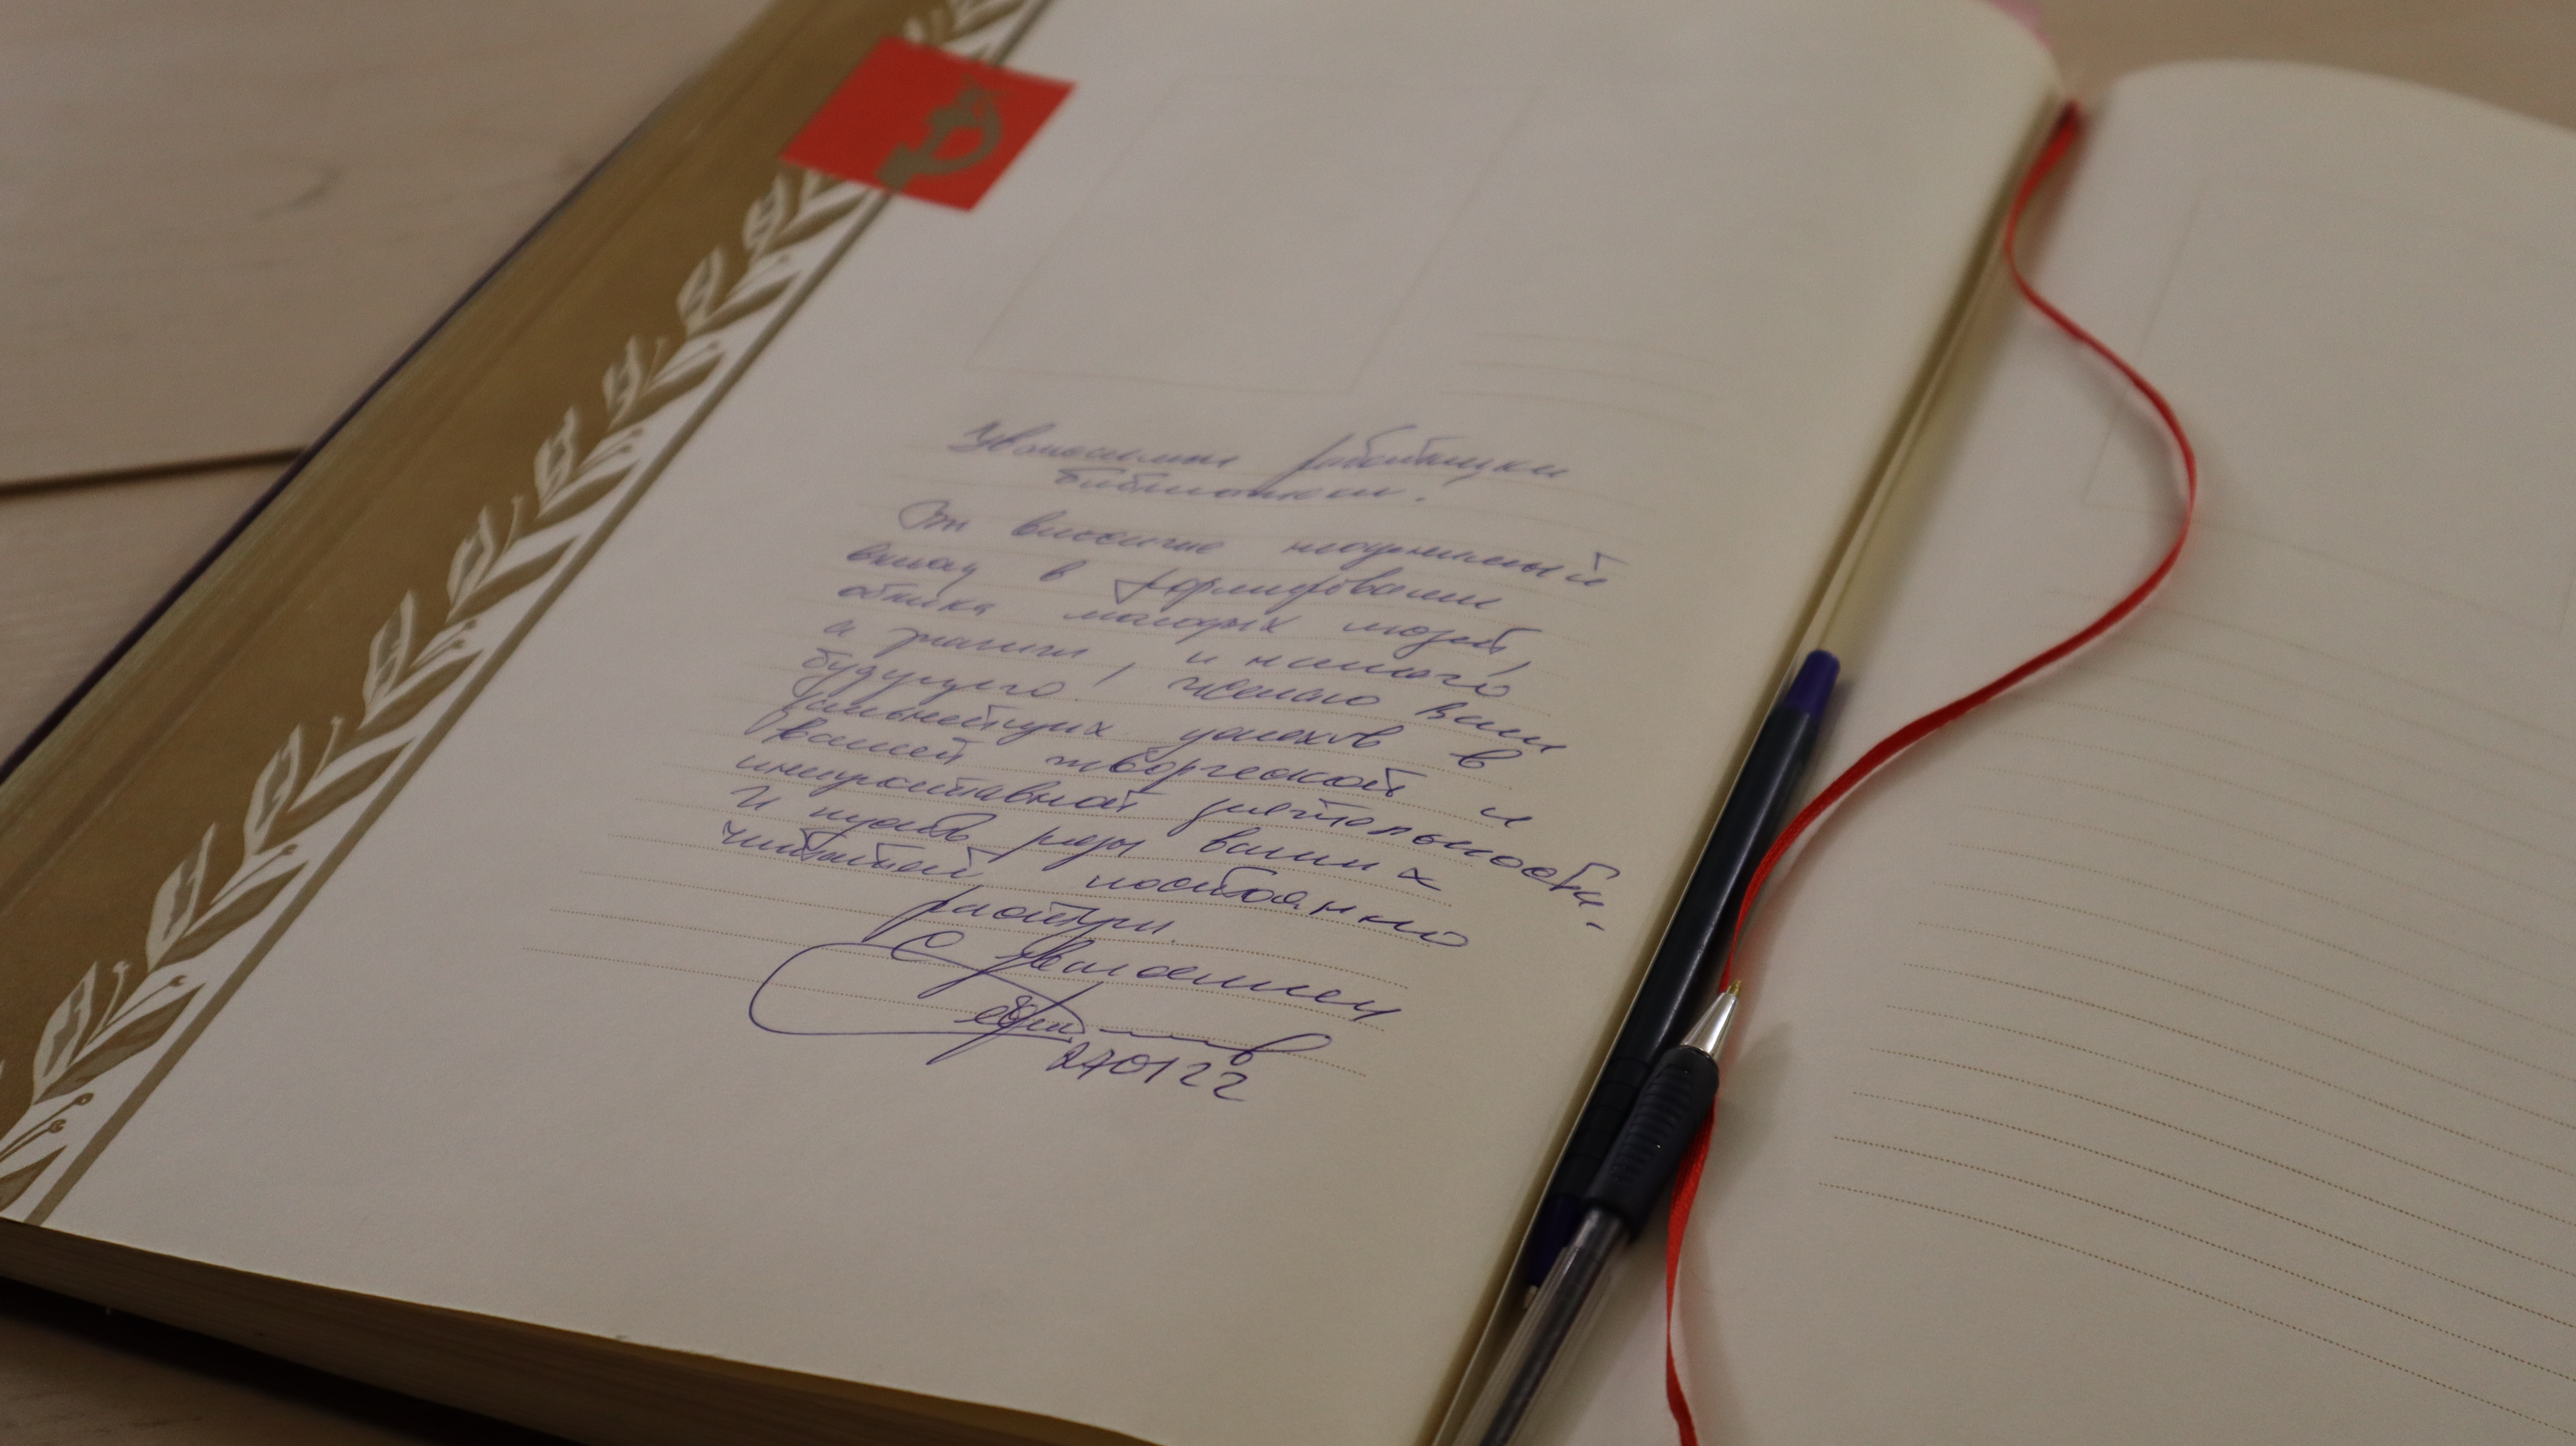 Уважаемые работники
библиотеки.
Вы вносите неоценимый
вклад в формирование
облика молодых людей,
а значит, и нашего
будущего, желаю вам
дальнейших успехов в
вашей творческой и
деятельности.
И пусть ряды ваших
читателей постоянно
растут.
С уважением
270122